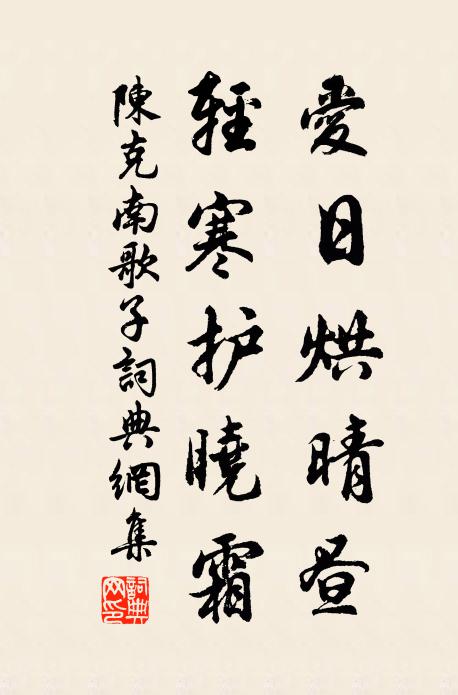 愛日烘晴昼
輕寒护曉霜
陳克南歌子詞典網集
詞典网印